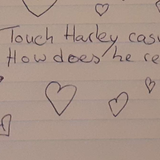 Touch Harley
How does he